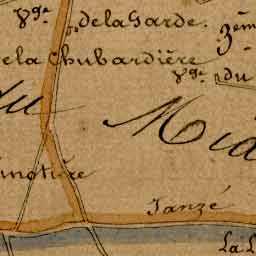 de la Garde.
3ème
de la Chubardière
du
du Mid
inotière
Janzé
La L